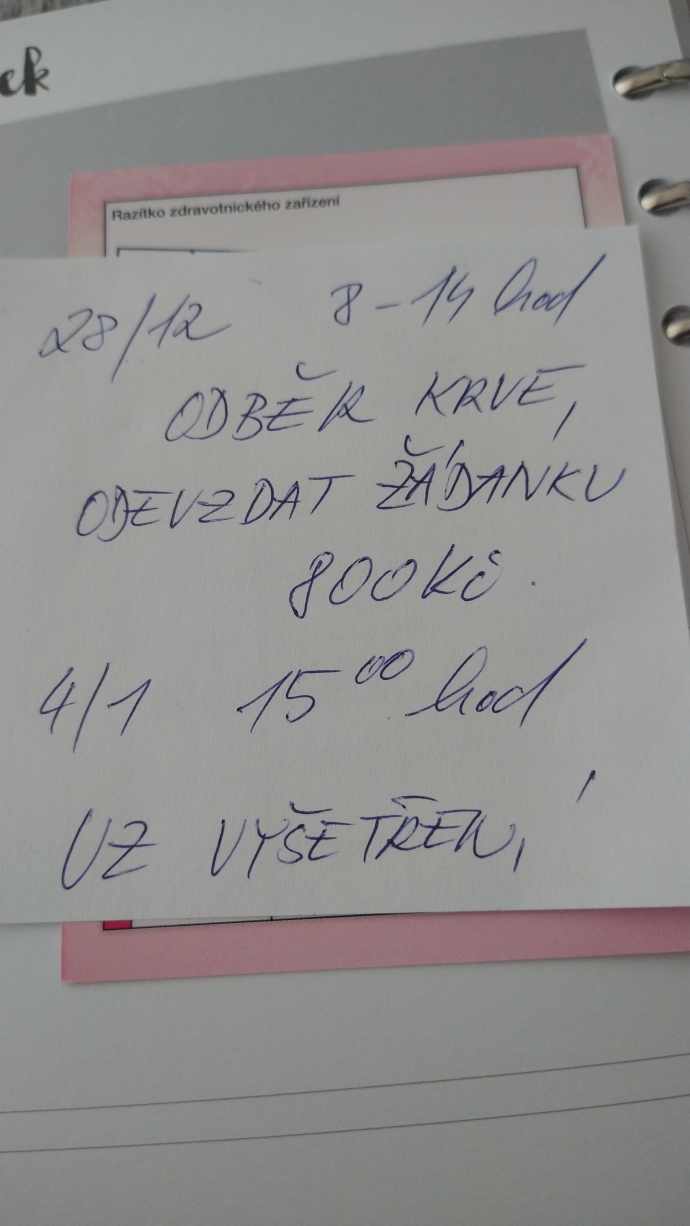 ek
Razítko zdravotnického zařízení
28/12 8-14 hod
ODBĚR KRVE,
ODEVZDAT ŽÁDANKU
800Kč.
4/1 15⁰⁰ hod
UZ VYŠETŘENÍ